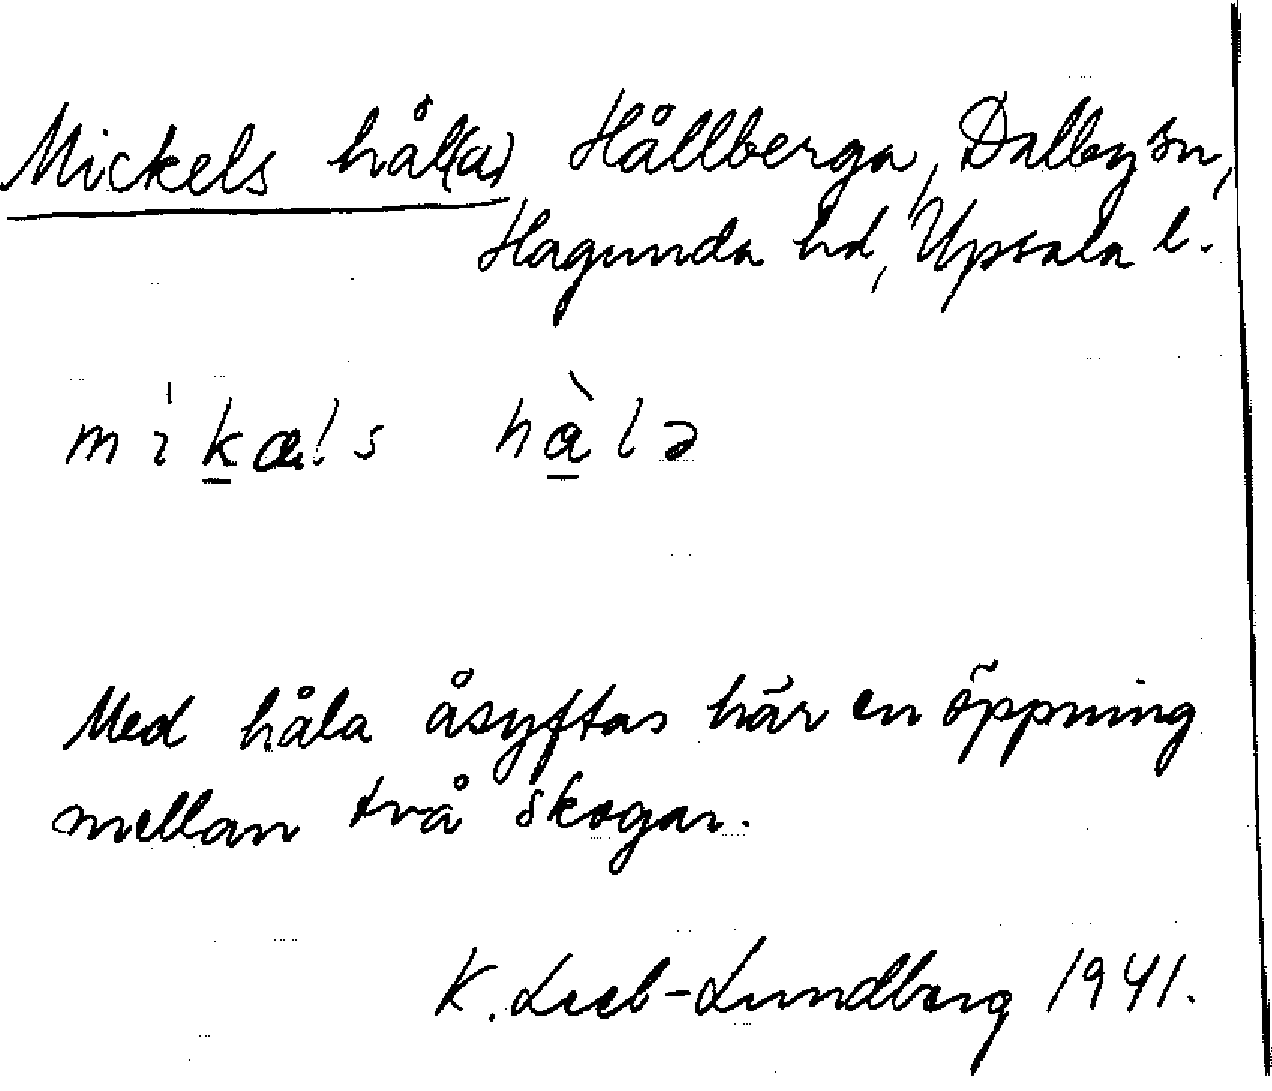 Mickels hål(a) Hållberga, Dalby sn,
Hagunda hd, Upsala l.
mı̍k̲æls hà̲lə
Med håla åsyftas här en öppning
mellan två skogar.
K. Leeb-Lundberg 1941.